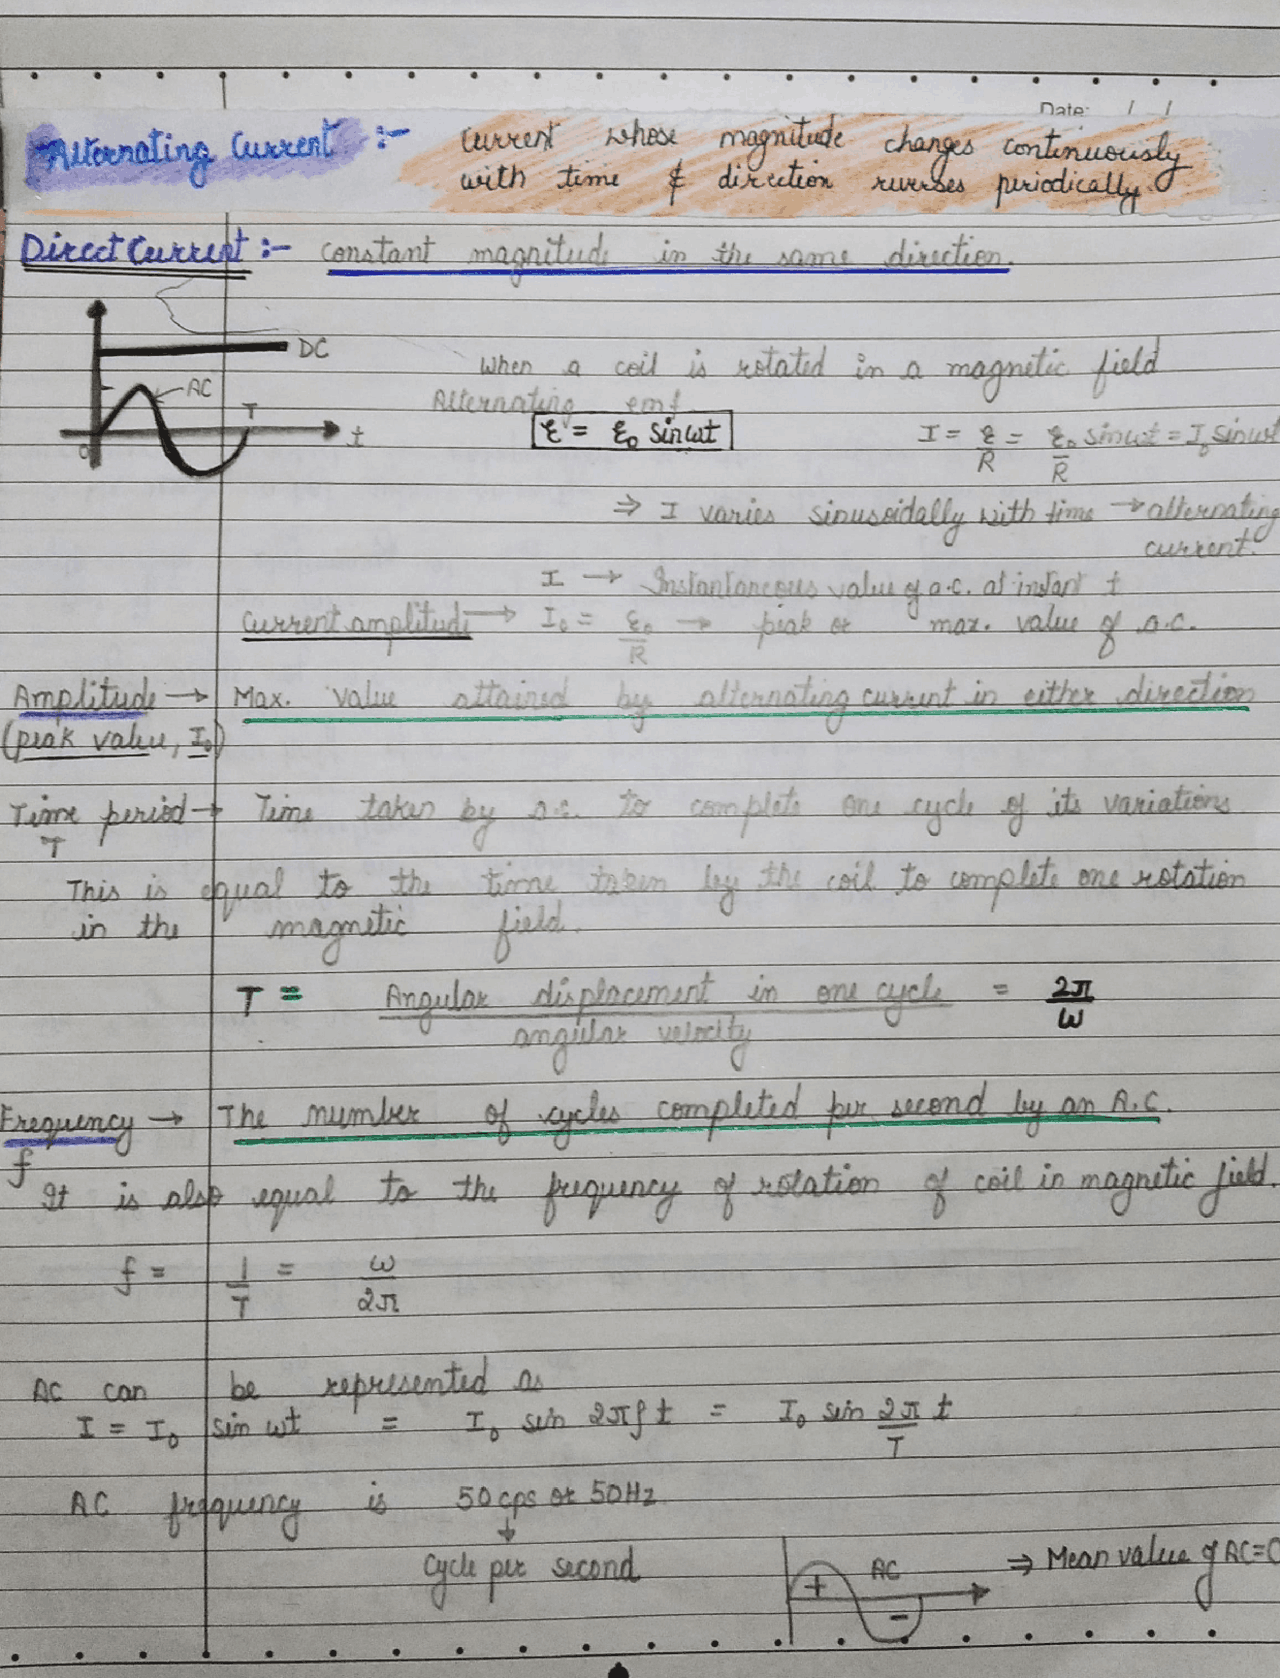 Date: / /
Alternating Current :- Current whose magnitude changes continuously
with time & direction reverses periodically.
Direct Current :- constant magnitude in the same direction.
DC
AC
T
t
0
When a coil is rotated in a magnetic field
Alternating emf
ε = ε₀ sinωt
I = ε/R = ε₀/R sinωt = I₀ sinωt
⇒ I varies sinusoidally with time → alternating
current.
I → Instantaneous value of a.c. at instant t
Current amplitude → I₀ = ε₀/R → peak or max. value of a.c.
Amplitude → Max. value attained by alternating current in either direction
(peak value, I₀)
Time period → Time taken by a.c. to complete one cycle of its variations
T
This is equal to the time taken by the coil to complete one rotation
in the magnetic field.
T = Angular displacement in one cycle / angular velocity = 2π/ω
Frequency → The number of cycles completed per second by an A.C.
f
It is also equal to the frequency of rotation of coil in magnetic field.
f = 1/T = ω/2π
AC can be represented as
I = I₀ sin ωt = I₀ sin 2πft = I₀ sin 2π/T t
AC frequency is 50 cps or 50Hz
↓
Cycle per second
AC
+
-
⇒ Mean value of AC=0